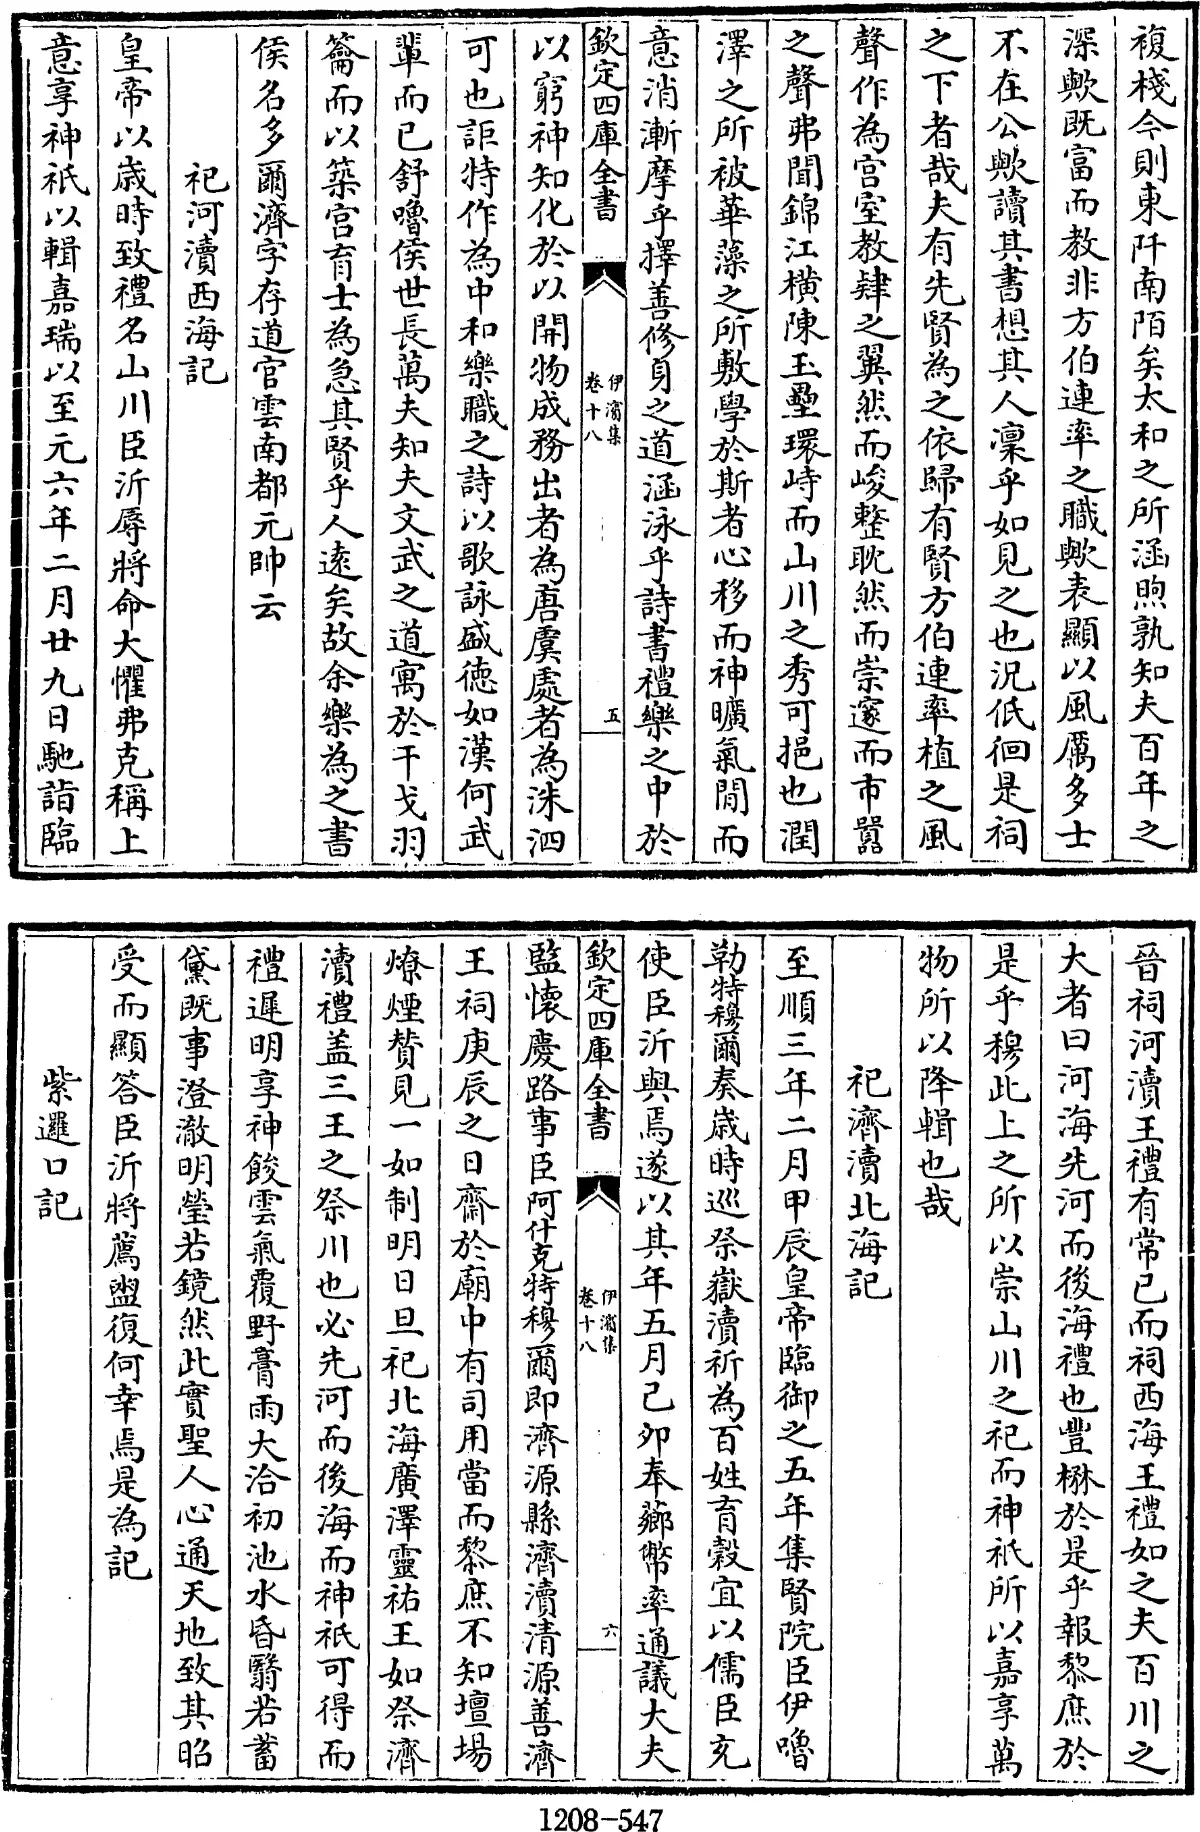 複棧今則東阡南陌矣太和之所涵煦孰知夫百年之
深歟既富而教非方伯連率之職歟表顯以風厲多士
不在公歟讀其書想其人凜乎如見之也況低徊是祠
之下者哉夫有先賢為之依歸有賢方伯連率植之風
聲作為宫室教肄之翼然而峻整耽然而崇邃而市囂
之聲弗聞錦江横陳玉壘環峙而山川之秀可挹也潤
澤之所被華藻之所敷學於斯者心移而神曠氣閒而
意消漸摩乎擇善修身之道涵泳乎詩書禮樂之中於
欽定四庫全書
伊濱集
卷十八
五
以窮神知化於以開物成務出者為唐虞處者為洙泗
可也詎特作為中和樂職之詩以歌詠盛德如漢何武
輩而已舒嚕侯世長萬夫知夫文武之道寓於干戈羽
籥而以築宫育士為急其賢乎人遠矣故余樂為之書
侯名多爾濟字存道官雲南都元帥云
祀河瀆西海記
皇帝以歲時致禮名山川臣沂辱將命大懼弗克稱上
意享神祇以輯嘉瑞以至元六年二月廿九日馳詣臨
晉祠河瀆王禮有常已而祠西海王禮如之夫百川之
大者曰河海先河而後海禮也豐楙於是乎報黎庶於
是乎穆此上之所以崇山川之祀而神祇所以嘉享萬
物所以降輯也哉
祀濟瀆北海記
至順三年二月甲辰皇帝臨御之五年集賢院臣伊嚕
勒特穆爾奏歲時巡祭嶽瀆祈為百姓育穀宜以儒臣充
使臣沂與焉遂以其年五月己卯奉薌幣率通議大夫
欽定四庫全書
伊濱集
卷十八
六
監懷慶路事臣阿什克特穆爾即濟源縣濟瀆清源善濟
王祠庚辰之日齋於廟中有司用當而黎庶不知壇場
燎煙贊見一如制明日旦祀北海廣澤靈祐王如祭濟
瀆禮盖三王之祭川也必先河而後海而神祇可得而
禮遲明享神餕雲氣覆野膏雨大洽初池水昏翳若蓄
黛既事澄澈明瑩若鏡然此實聖人心通天地致其昭
受而顯答臣沂將薦盥復何幸焉是為記
紫邏口記
1208-547